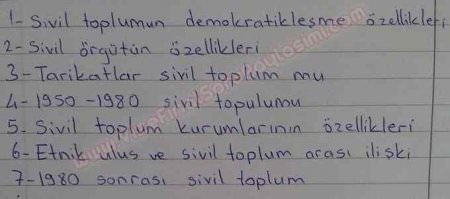 1- Sivil toplumun demokratikleşme özellikleri
2- Sivil örgütün özellikleri
3- Tarikatlar sivil toplum mu
4- 1950 - 1980 sivil topulumu
5. Sivil toplum kurumlarının özellikleri
6- Etnik ulus ve sivil toplum arası ilişki
7- 1980 sonrası sivil toplum